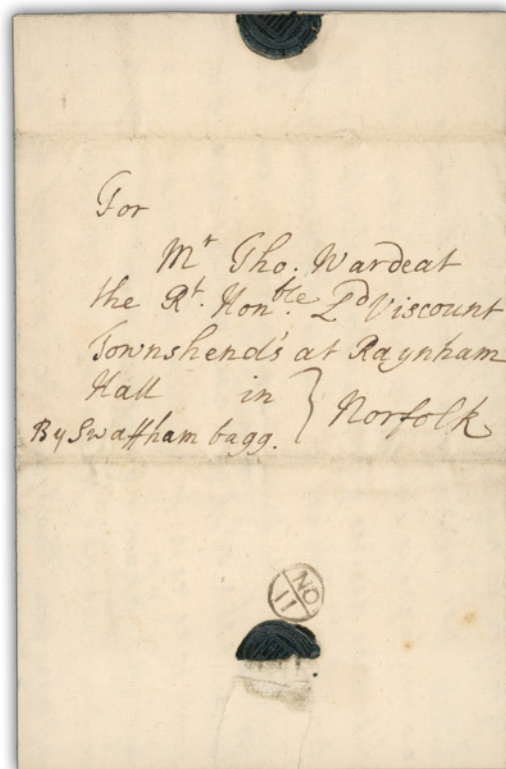 For
Mr Tho. Wardeat
the Rt. Honble Ld Viscount
Townshend's at Raynham
Hall in } Norfolk
By Swaffham bagg.
NO
11